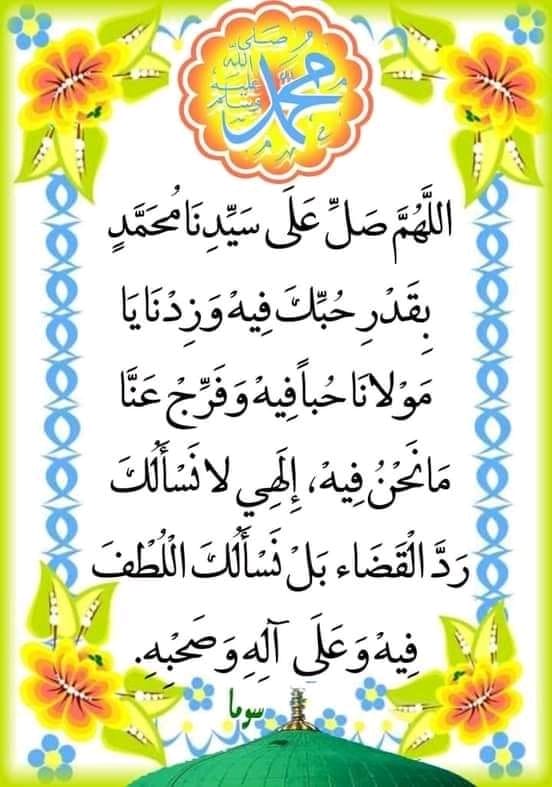 محمد صلى الله عليه وسلم
اللَّهُمَّ صَلِّ عَلَى سَيِّدِنَا مُحَمَّدٍ
بِقَدْرِ حُبِّكَ فِيهْ وَزِدْنَا يَا
مَوْلَانَا حُباً فِيهْ وَفَرِّجْ عَنَّا
مَا نَحْنُ فِيهْ، إِلَهِي لا نَسْأَلُكَ
رَدَّ الْقَضَاء بَلْ نَسْأَلُكَ اللُّطْفَ
فِيهْ وَعَلَى آلِهِ وَصَحْبِهِ.
سوما